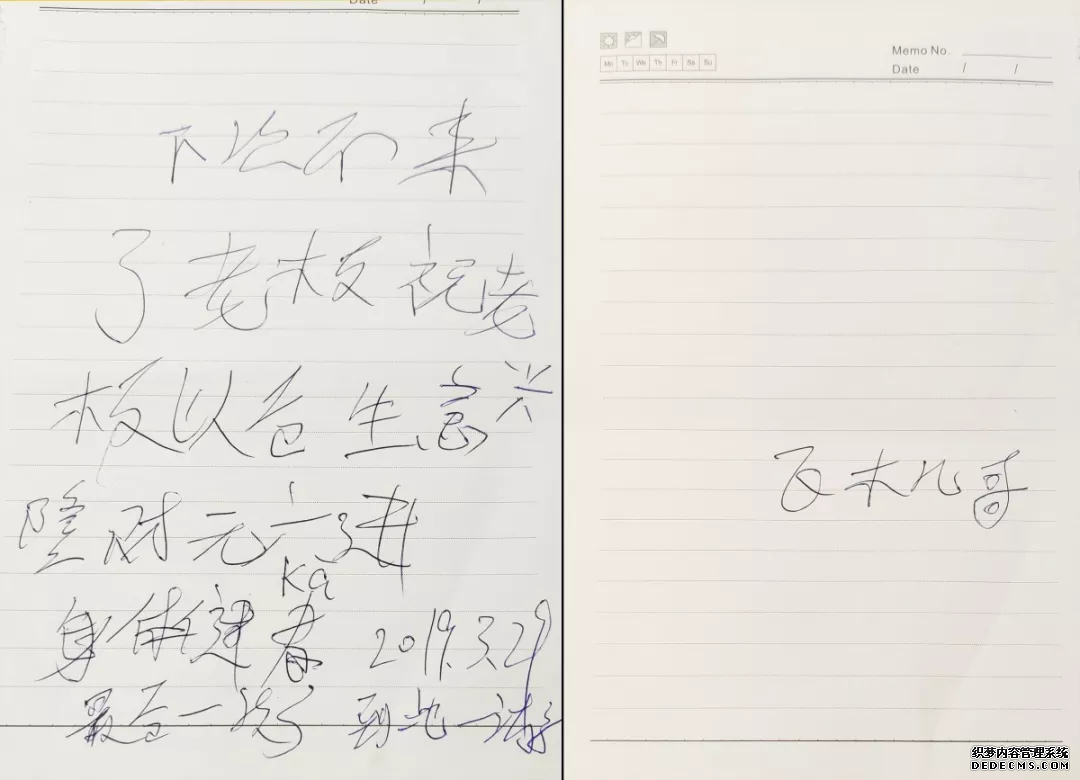 Date / /
下次不来
了老板祝老
板以后生意兴
隆财元广进
kā
身体健春 2019.3.29
最后一次 到此一游
Mo Tu We Th Fr Sa Su
Memo No.
Date / /
瓦木儿哥
织梦内容管理系统
DEDECMS.COM